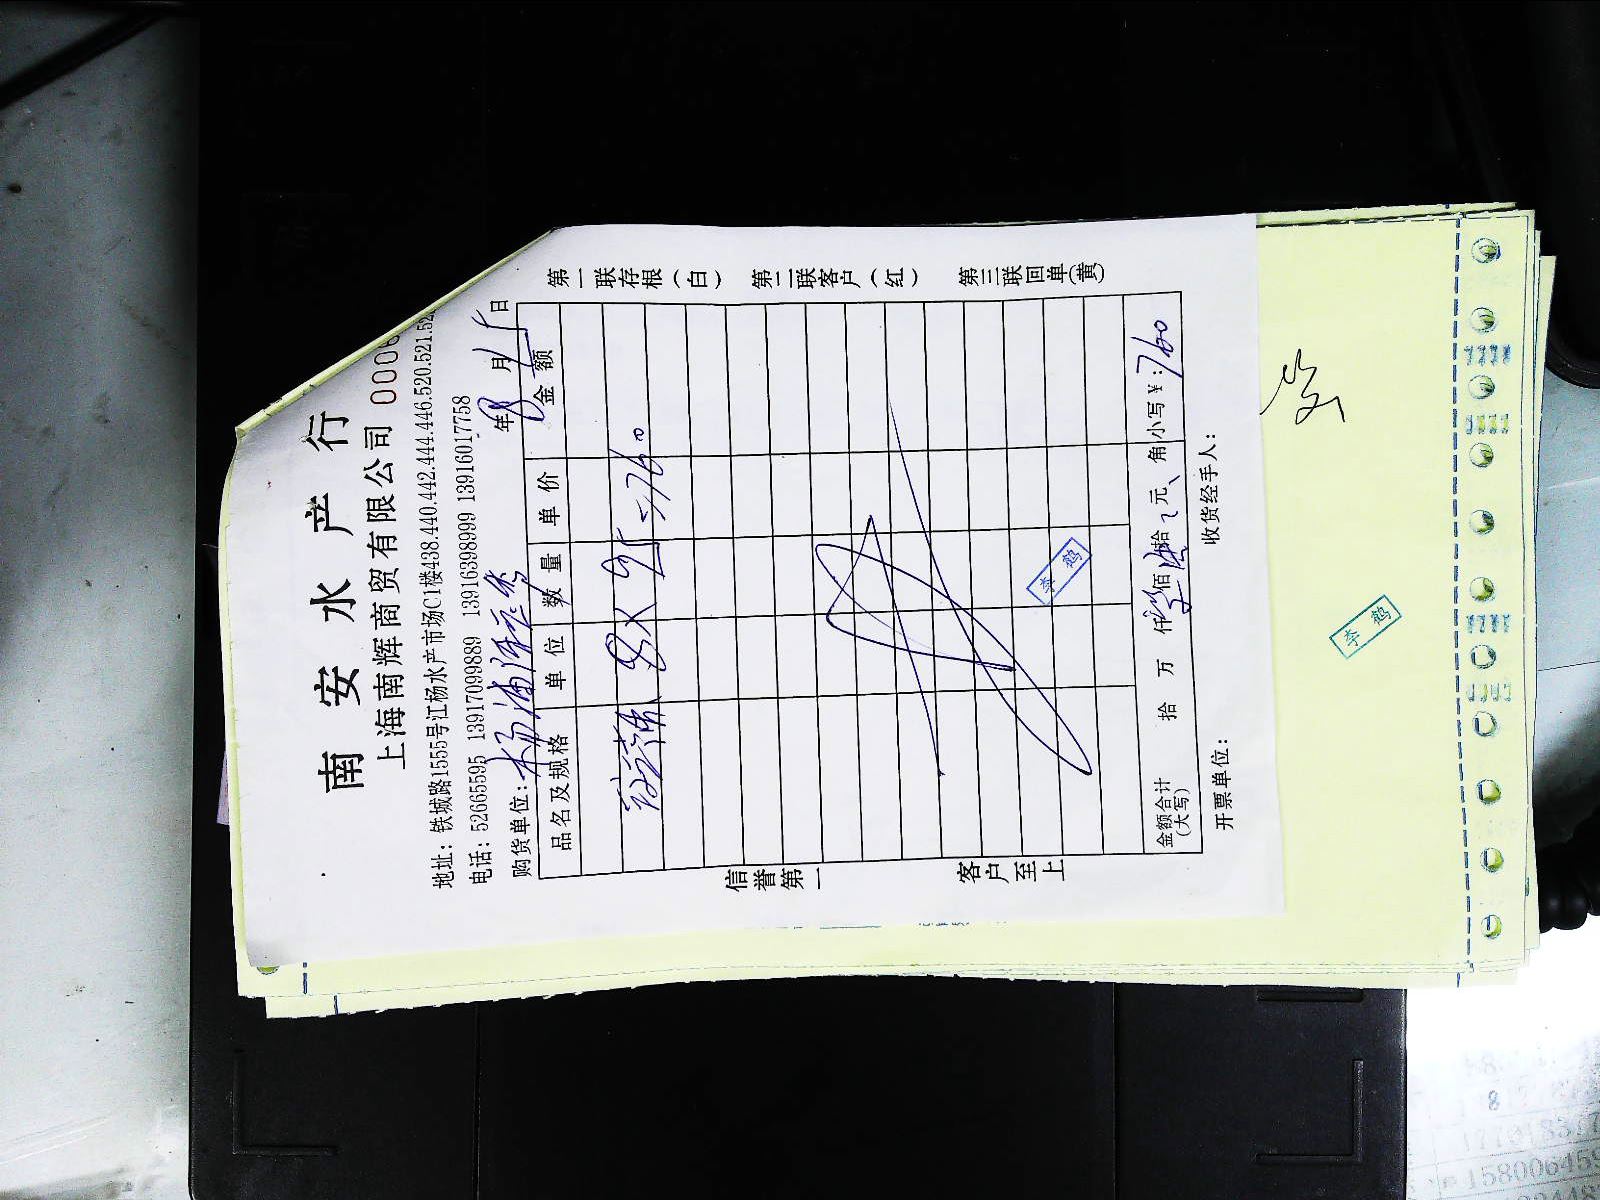 南安水产行
上海南辉商贸有限公司 0006
地址: 铁城路1555号江杨水产市场C1楼438.440.442.444.446.520.521.52
电话: 52665595 13917099889 13916398999 13916017758
购货单位: 年8月15日
品名及规格 单位 数量 单价 金额
8 X 95 = 760
金额合计(大写) 拾 万 仟 佰 拾 元 角 小写¥: 760
开票单位: 收货经手人:
信誉第一 客户至上
第一联存根(白) 第二联客户(红) 第三联回单(黄)
李鹤
李鹤